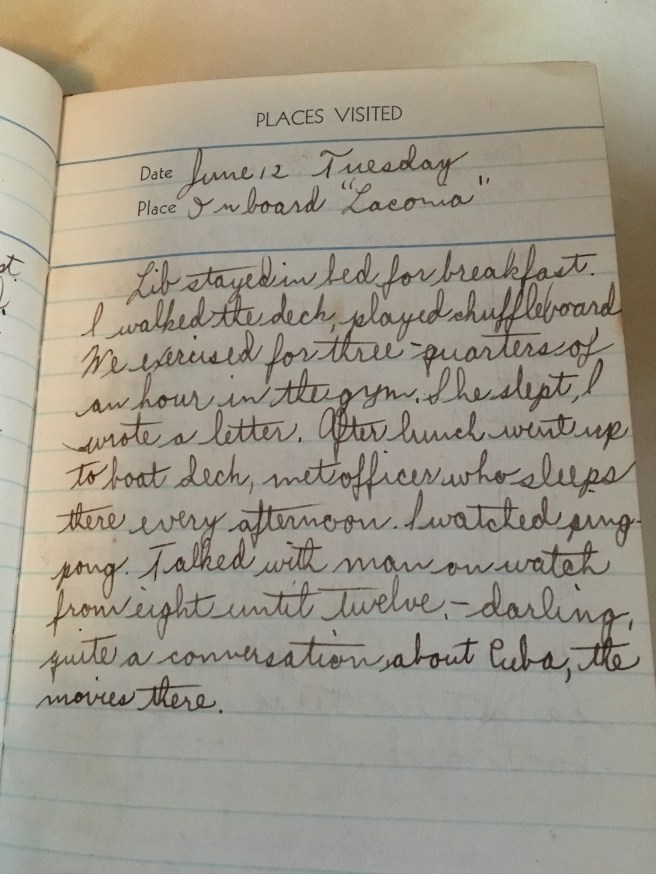 PLACES VISITED
Date June 12 Tuesday
Place On board "Laconia"
st.
Lib stayed in bed for breakfast.
I walked the deck, played shuffleboard
We exercised for three-quarters of
an hour in the gym. She slept, I
wrote a letter. After lunch went up
to boat deck, met officer who sleeps
there every afternoon. I watched ping-
pong. Talked with man on watch
from eight until twelve, - darling,
quite a conversation, about Cuba, the
movies there.